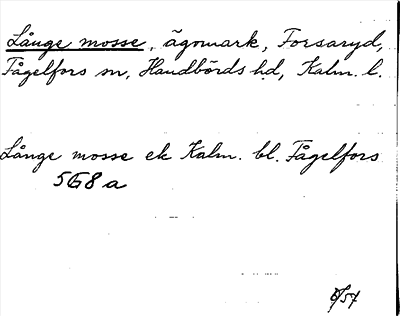 Långe mosse, ägomark, Forsaryd,
Fågelfors sn, Handbörds hd, Kalm. l.
Långe mosse ek Kalm. bl. Fågelfors
5G8a